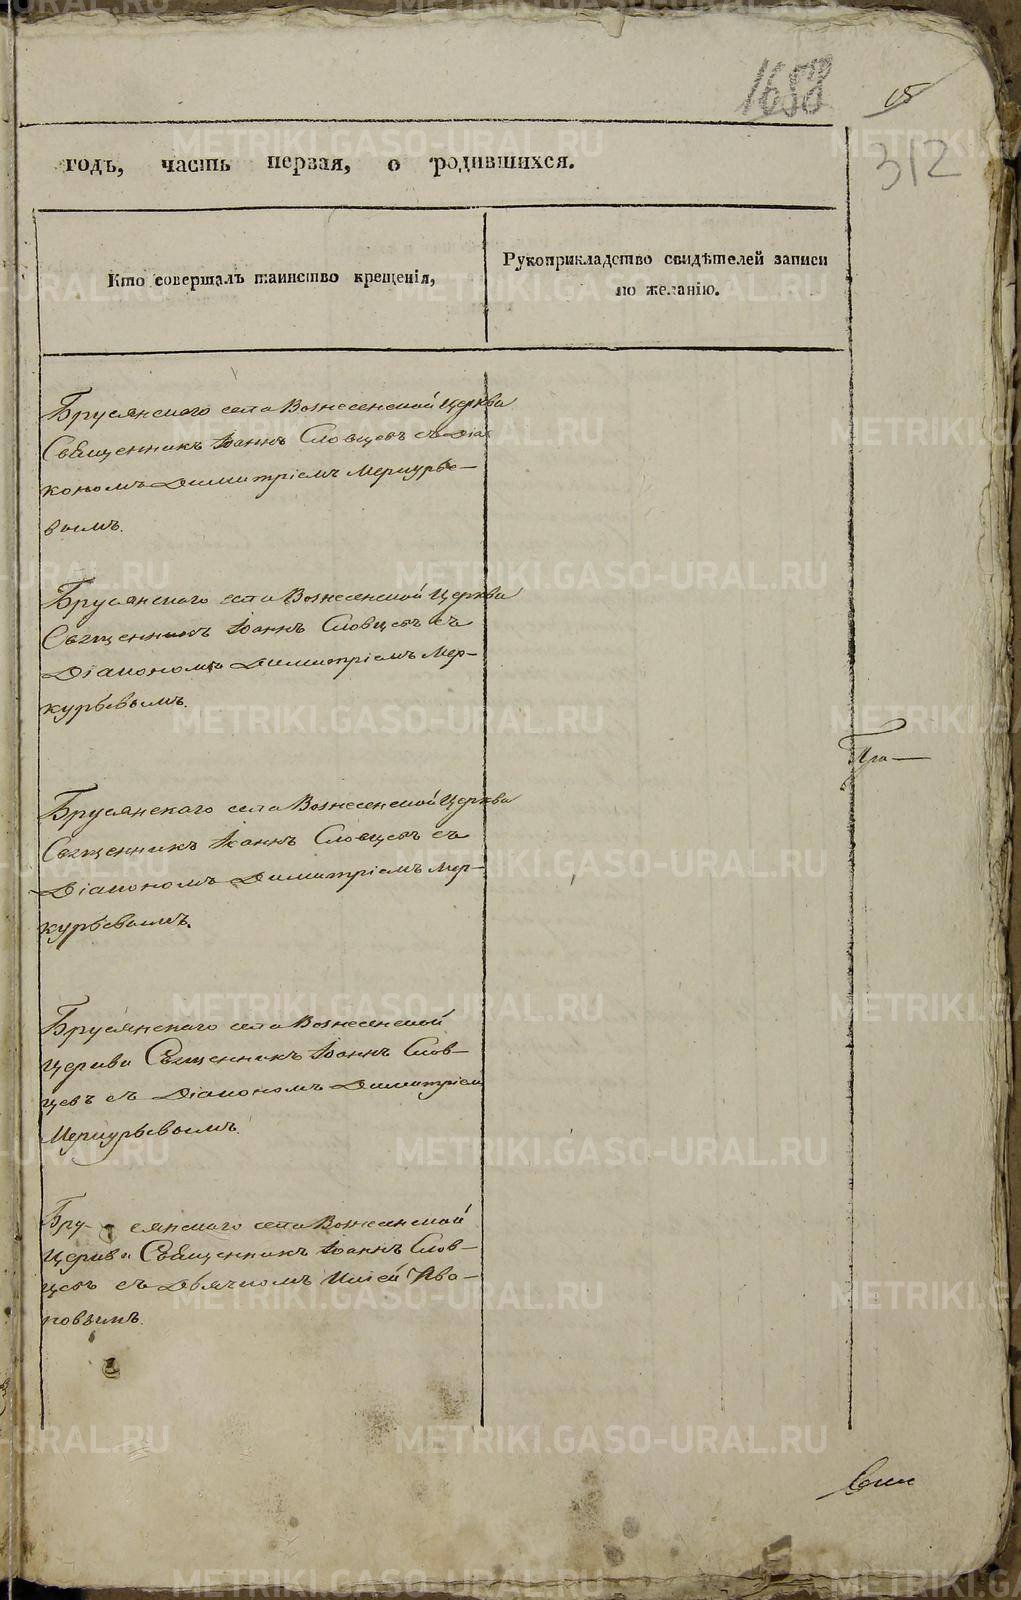 1658
15
312
годъ, часть первая, о родившихся.
Кто совершалъ таинство крещенія,
Рукоприкладство свидѣтелей записи
по желанію.
Брусянского села Вознесенской Церкви
Священникъ Іоаннъ Словцовъ съ Діа
кономъ Димитріемъ Меркурье-
вымъ.
Брусянского села Вознесенской Церкви
Священникъ Іоаннъ Словцовъ съ
Діакономъ Димитріемъ Мер-
курьевымъ.
Брусянского села Вознесенской Церкви
Священникъ Іоаннъ Словцовъ съ
Діакономъ Димитріемъ Мер-
курьевымъ.
Брусянского села Вознесенской
Церкви Священникъ Іоаннъ Слов-
цовъ съ Діакономъ Димитріем
Меркурьевымъ.
Бру- сянского села Вознесенской
Церкви Священникъ Іоаннъ Слов-
цовъ съ Дьячкомъ
повымъ.
METRIKI.GASO-URAL.RU